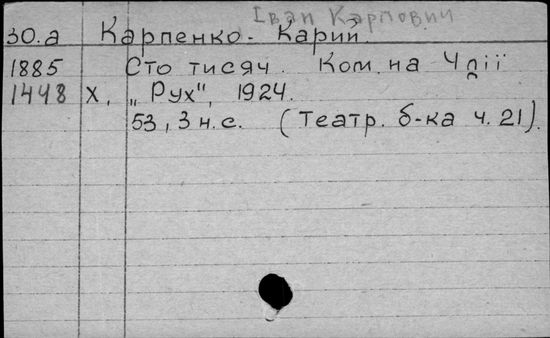 Іван Карпович
30.а Карпенко-Карий.
1885 Сто тисяч. Ком. на 4 дії
1448 Х., „Рух", 1924.
53, 3 н.с. (Театр. б-ка ч. 21).